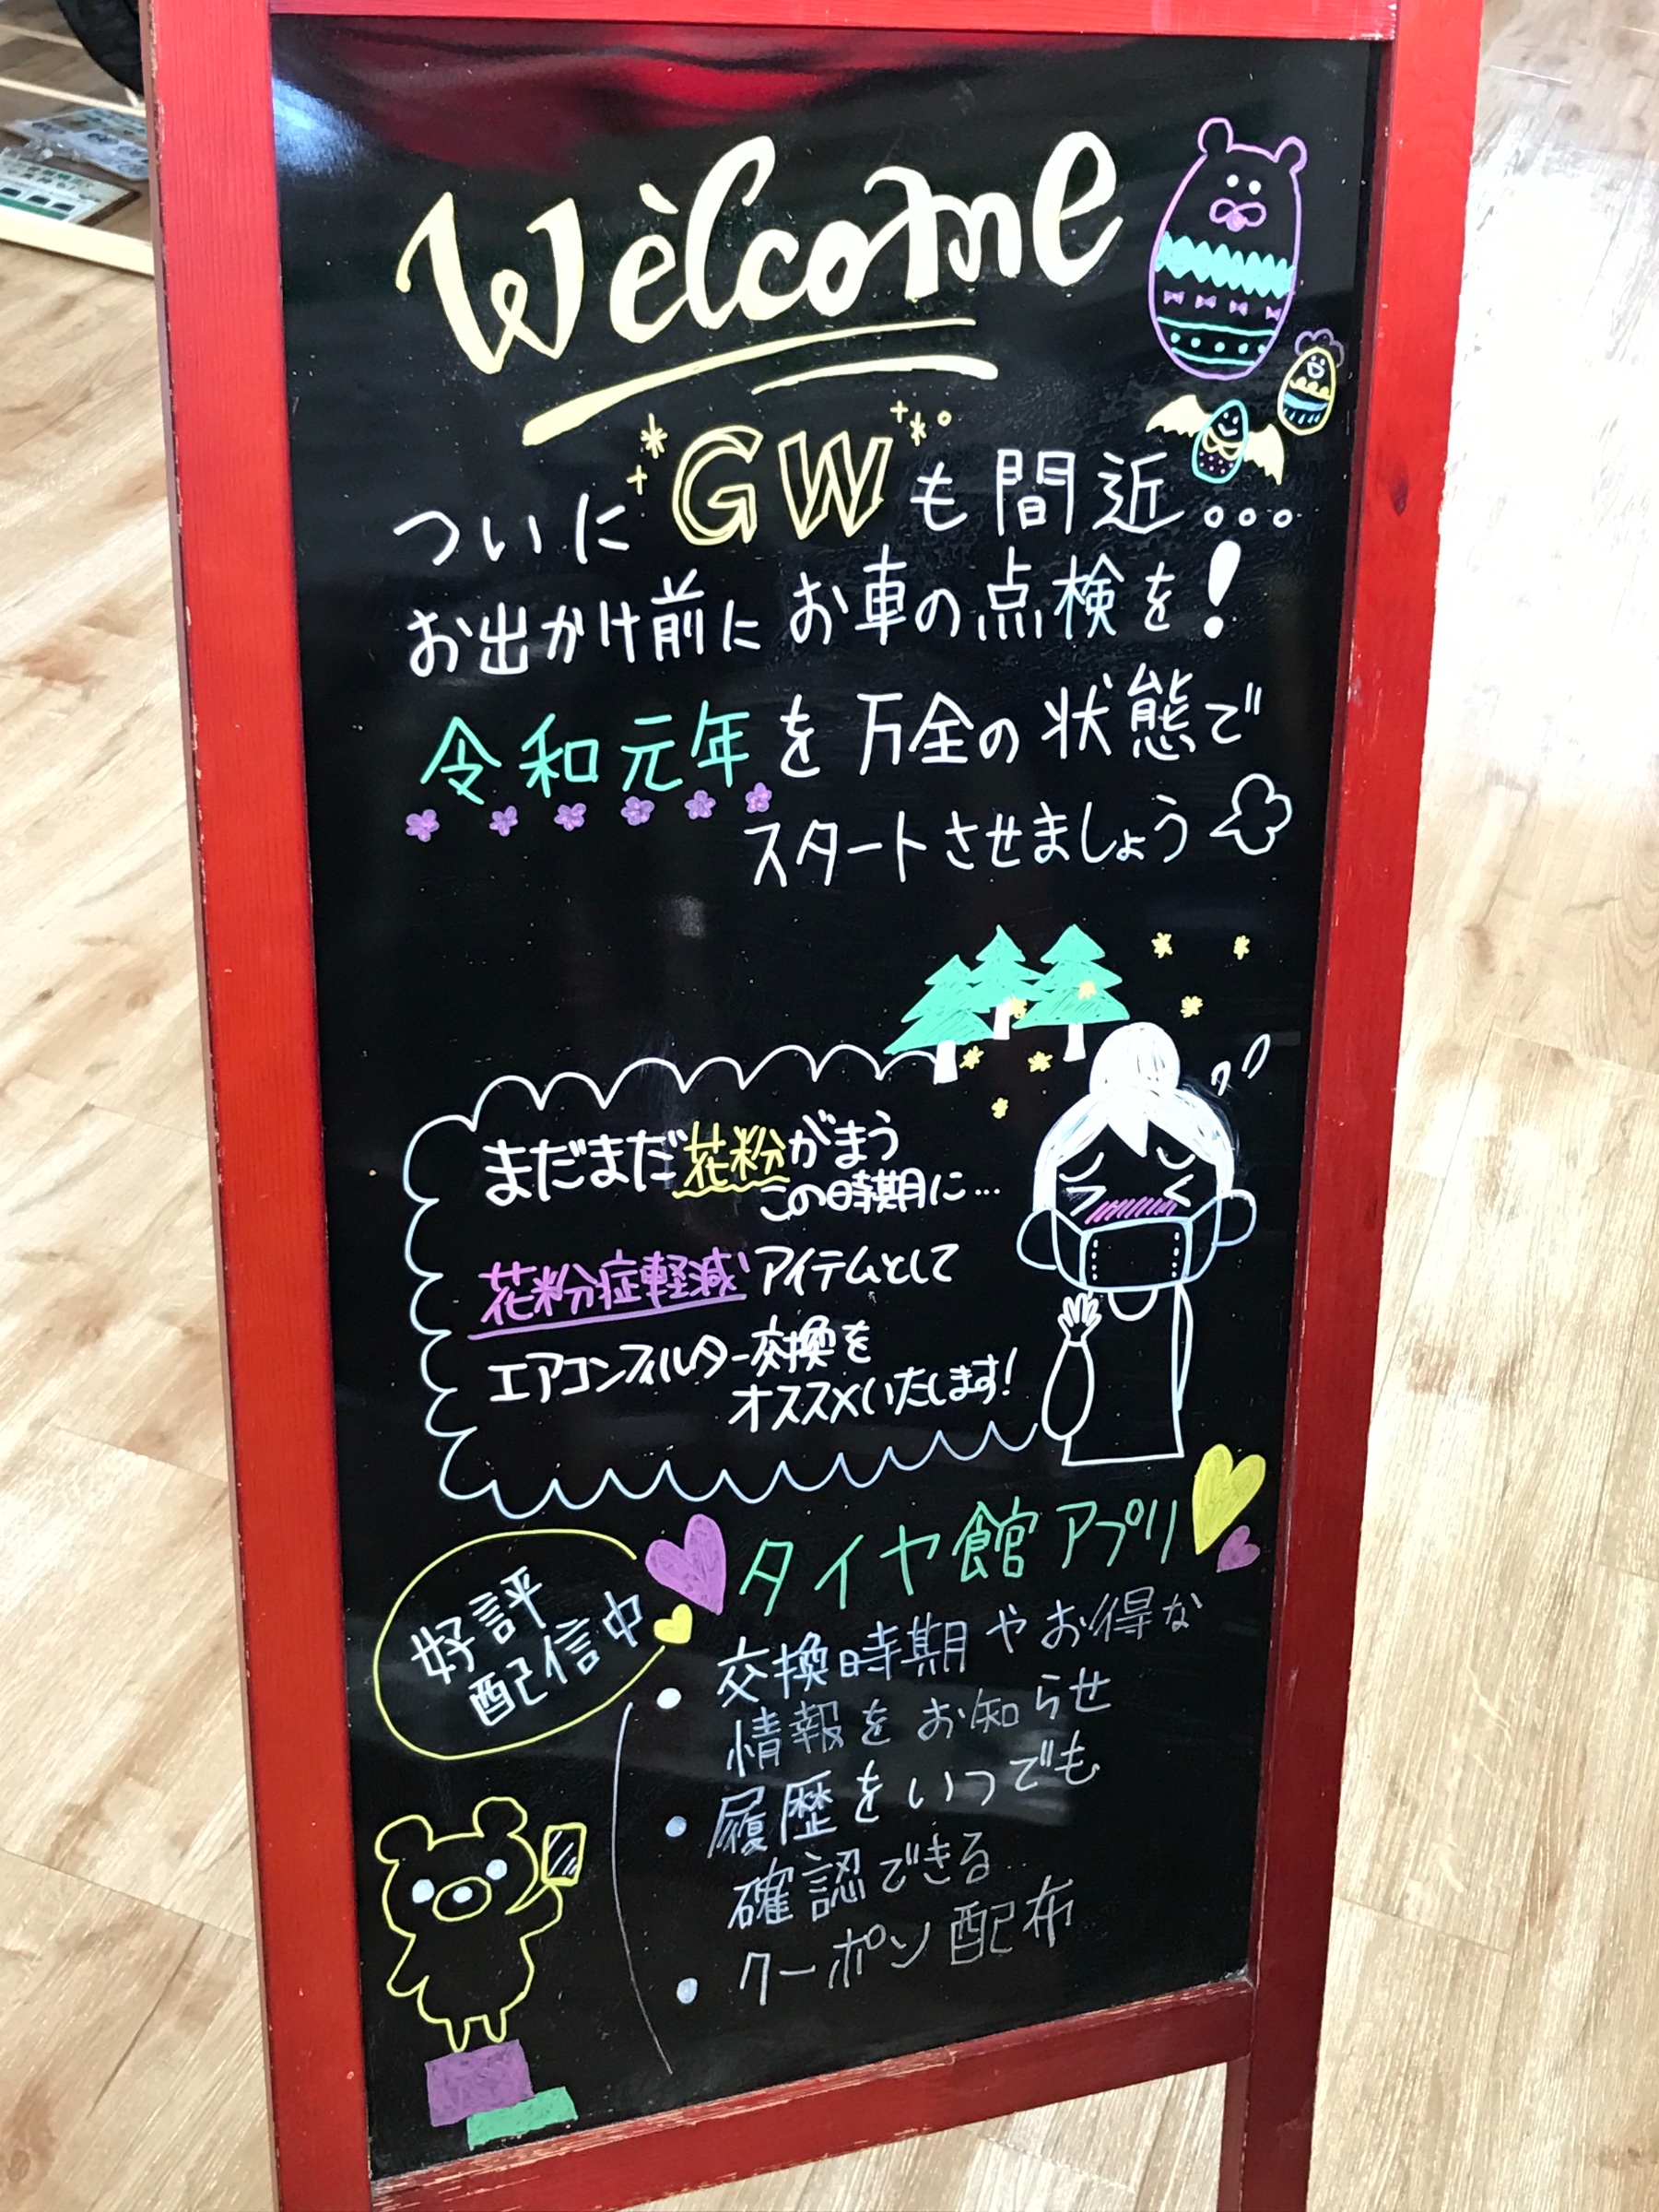 Welcome
ついにGWも間近...
お出かけ前にお車の点検を!
令和元年を万全の状態で
スタートさせましょう
まだまだ花粉がまう
この時期に...
花粉症軽減アイテムとして
エアコンフィルター交換を
オススメいたします!
好評
配信中
タイヤ館アプリ
・交換時期やお得な
情報をお知らせ
・履歴をいつでも
確認できる
・クーポン配布